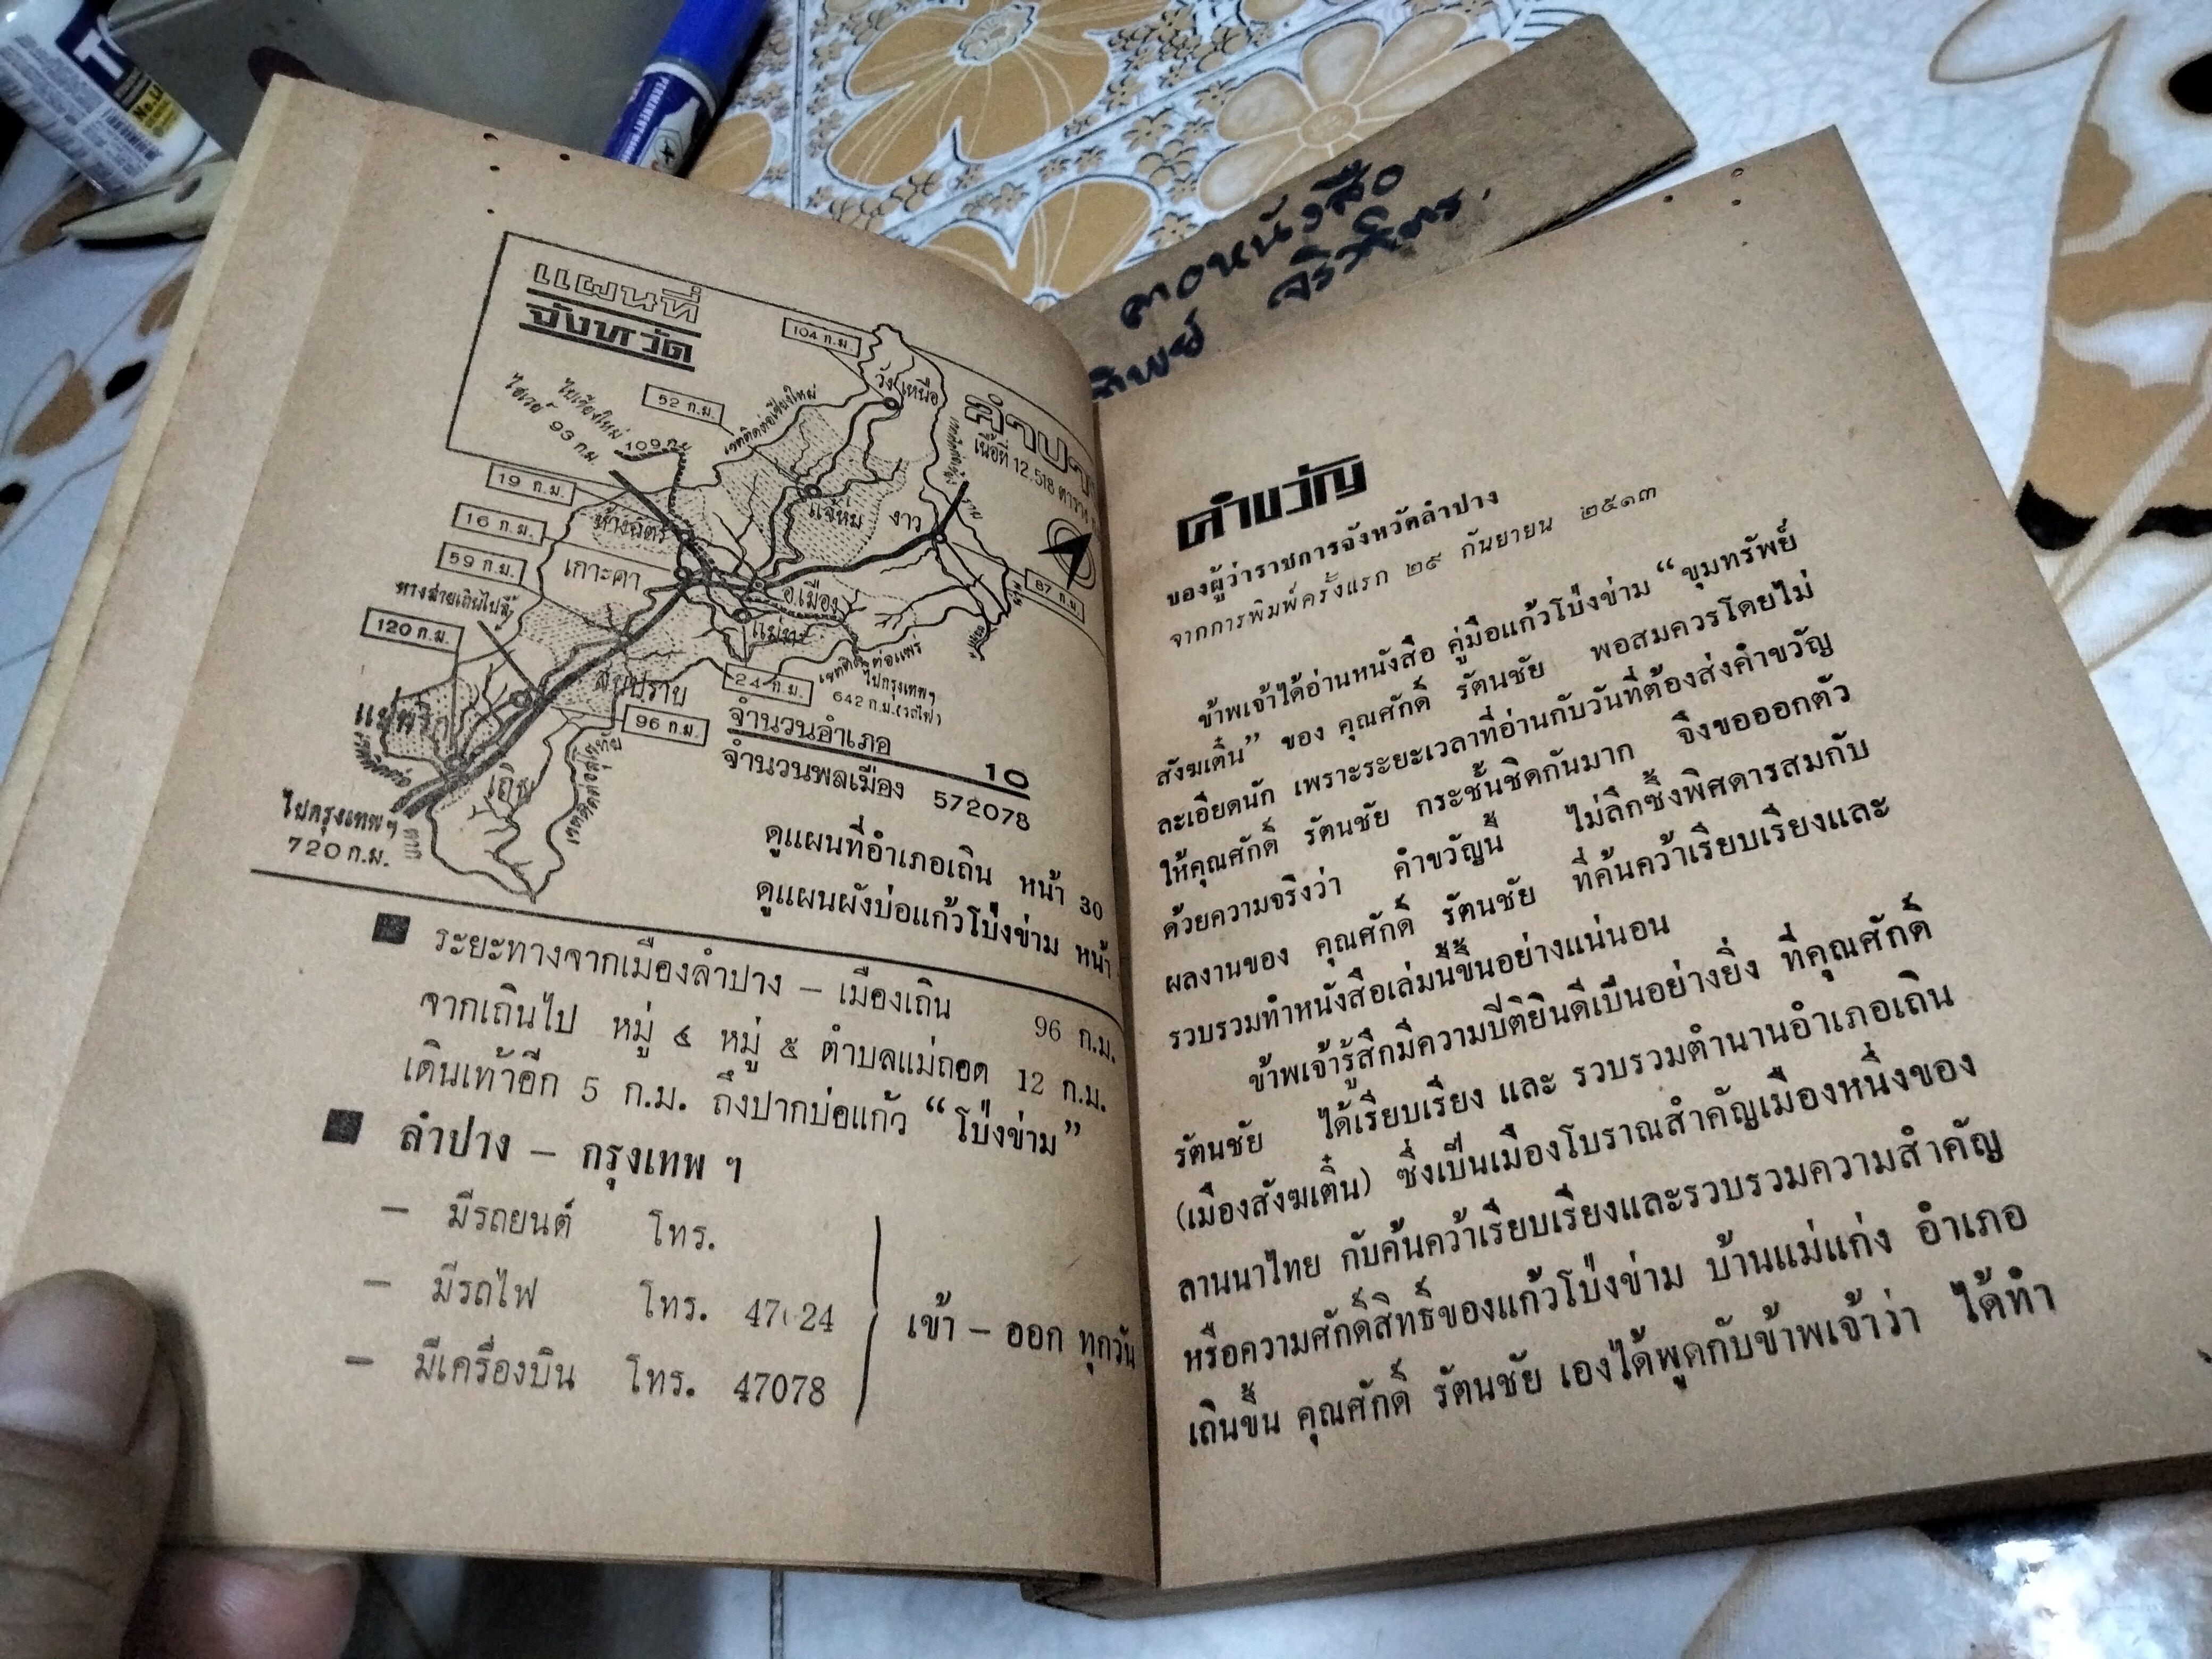 แผนที่
จังหวัด
104 ก.ม.
วังเหนือ
52 ก.ม.
เขตติดต่อเชียงใหม่
ไปเชียงใหม่
109 ก.ม.
ไฮเวย์
93 ก.ม.
เนื้อที่ 12.518 ตาราง
19 ก.ม.
ห้างฉัตร
แจ้ห่ม
งาว
16 ก.ม.
เกาะคา
59 ก.ม.
อ.เมือง
87 ก.ม.
แม่ทะ
120 ก.ม.
24 ก.ม.
เขตติดต่อแพร่
ไปกรุงเทพฯ
642 ก.ม.(รถไฟ)
สบปราบ
96 ก.ม.
แม่พริก
เถิน
ไปกรุงเทพฯ
720 ก.ม.
ตาก
จำนวนอำเภอ 10
จำนวนพลเมือง 572078
ดูแผนที่อำเภอเถิน หน้า 30
ดูแผนผังบ่อแก้วโป่งข่าม หน้า
ระยะทางจากเมืองลำปาง – เมืองเถิน 96 ก.ม.
จากเถินไป หมู่ ๔ หมู่ ๕ ตำบลแม่ถอด 12 ก.ม.
เดินเท้าอีก 5 ก.ม. ถึงปากบ่อแก้ว “โป่งข่าม”
ลำปาง – กรุงเทพ ฯ
– มีรถยนต์ โทร.
– มีรถไฟ โทร. 47 24
– มีเครื่องบิน โทร. 47078
เข้า – ออก ทุกวัน
คำขวัญ
ของผู้ว่าราชการจังหวัดลำปาง
จากการพิมพ์ครั้งแรก ๒๙ กันยายน ๒๕๑๓
ข้าพเจ้าได้อ่านหนังสือ คู่มือแก้วโป่งข่าม “ขุมทรัพย์
สังฆเติ๋น” ของ คุณศักดิ์ รัตนชัย พอสมควรโดยไม่
ละเอียดนัก เพราะระยะเวลาที่อ่านกับวันที่ต้องส่งคำขวัญ
ให้คุณศักดิ์ รัตนชัย กระชั้นชิดกันมาก จึงขอออกตัว
ด้วยความจริงว่า คำขวัญนี้ ไม่ลึกซึ้งพิศดารสมกับ
ผลงานของ คุณศักดิ์ รัตนชัย ที่ค้นคว้าเรียบเรียงและ
รวบรวมทำหนังสือเล่มนี้ขึ้นอย่างแน่นอน
ข้าพเจ้ารู้สึกมีความปีติยินดีเป็นอย่างยิ่ง ที่คุณศักดิ์
รัตนชัย ได้เรียบเรียง และ รวบรวมตำนานอำเภอเถิน
(เมืองสังฆเติ๋น) ซึ่งเป็นเมืองโบราณสำคัญเมืองหนึ่งของ
ลานนาไทย กับค้นคว้าเรียบเรียงและรวบรวมความสำคัญ
หรือความศักดิ์สิทธิ์ของแก้วโป่งข่าม บ้านแม่แก่ง อำเภอ
เถินขึ้น คุณศักดิ์ รัตนชัย เองได้พูดกับข้าพเจ้าว่า ได้ทำ